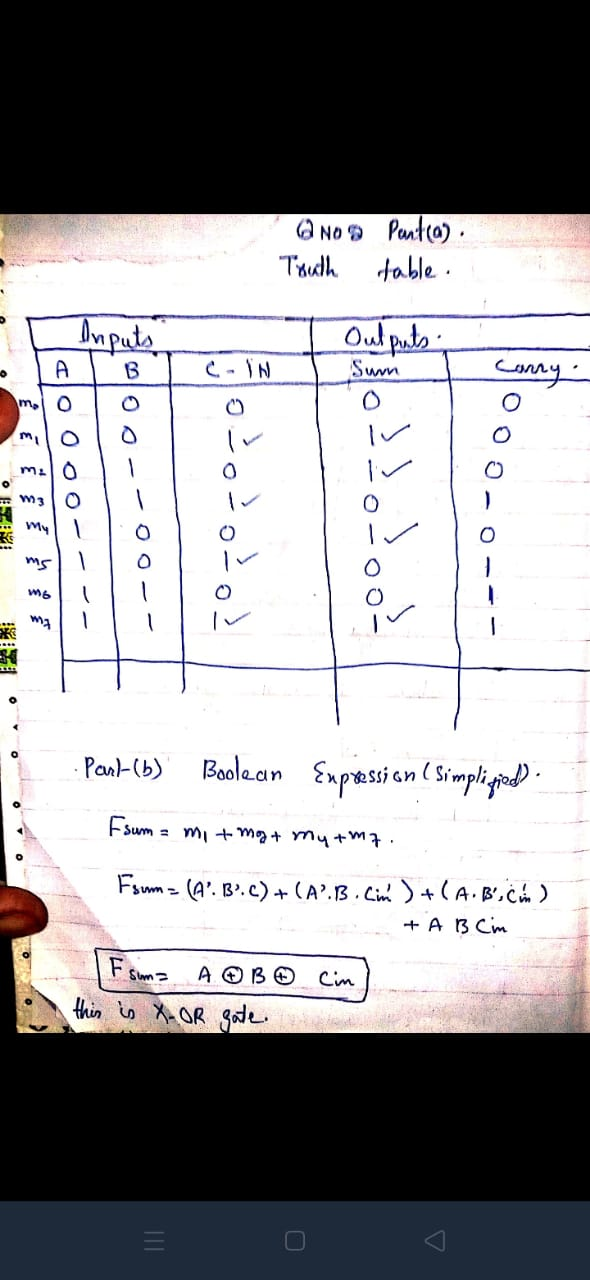 Q NO Part(a).
Truth table.
Inputs Outputs.
A B C-IN Sum Carry.
m0 0 0 0 0 0
m1 0 0 1✓ 1✓ 0
m2 0 1 0 1✓ 0
m3 0 1 1✓ 0 1
m4 1 0 0 1✓ 0
m5 1 0 1✓ 0 1
m6 1 1 0 0 1
m7 1 1 1✓ 1✓ 1
Part-(b) Boolean Expression (simplified).
Fsum = m1 + m2 + m4 + m7.
Fsum = (A'. B'. C) + (A'. B . Cin') + (A. B', Cin')
+ A B Cin
F sum = A ⊕ B ⊕ Cin
this is X-OR gate.